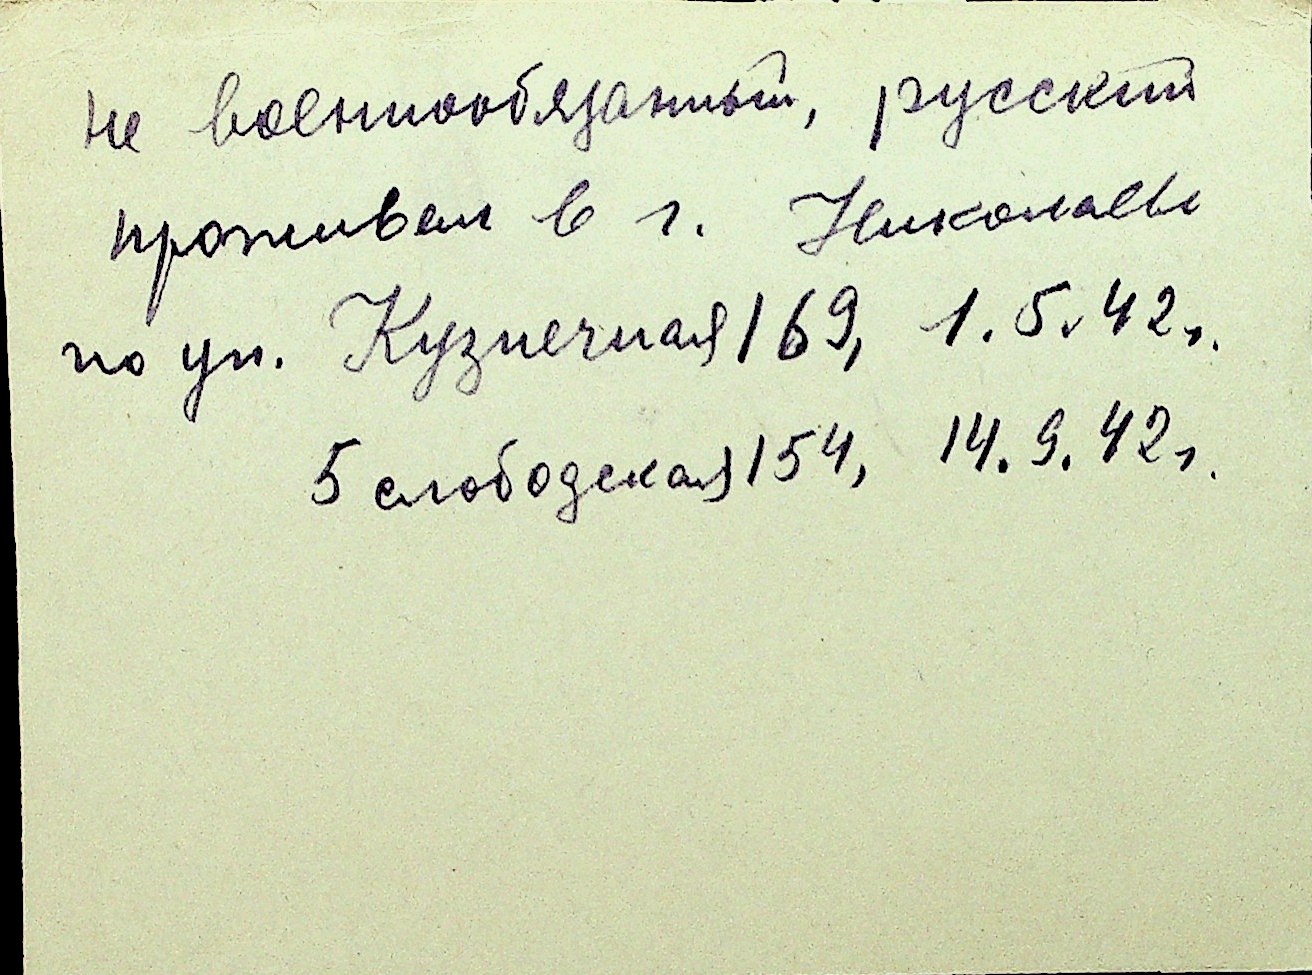 не военнообязанный, русский
проживал в г. Николаеве
по ул. Кузнечная 169, 1.5.42г.
5 слободская 154, 14.9.42г.